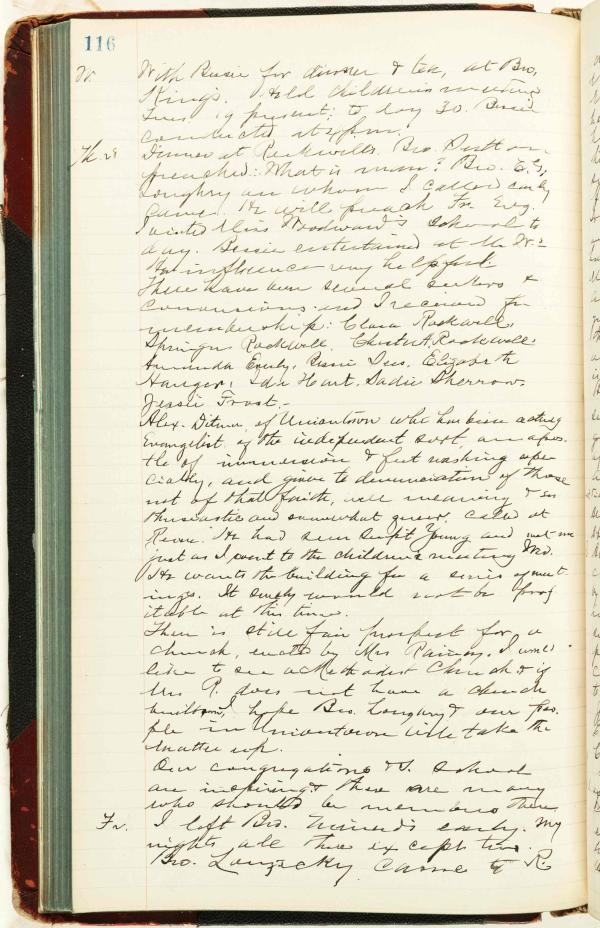 116
W. With Bessie for dinner & tea, at Bro.
King's. Held children's meeting
Tues. 19 present; to day 30. Bessie
conducted at 4 p.m.
Th. 29 Dinner at Rockwell's. Bro. Dutton
preached: What is man? Bro. E. G.
Loughry on whom I called early
came. He will preach Fr. Evg.
I visited Miss Woodward's School to
day. Bessie entertained at the W.
Her influence very helpful.
There have been several seekers &
conversions and I received for
membership: Clara Rockwell,
Rockwell, Rockwell,
Amanda Emily, Bessie Ives, Elizabeth
Hanger, Ida Hart, Sadie Sherrow,
Jessie Frost.-
Alex. Ditmer, of Uniontown who has been acting
Evangelist of the independent sort an apos
tle of immersion & feet washing espe
cially, and given to denunciation of those
not of that faith, well meaning & en
thusiastic and somewhat queer, called at
Revere. He had seen Supt Young and met me
just as I went to the children's meeting Wd.
He wants the building for a series of meet
ings. It surely would not be prof
itable at this time.
There is still fair prospect for a
church, erected by Mrs Rainey. I would
like to see a Methodist Church & if
Mrs R. does not have a church
built, I hope Bro. Loughry & our peo
ple in Uniontown will take the
matter up.
Our congregations & S. School
are inspiring & there are many
who should be members there
Fr. I left Bro. early. My
nights all there except two.
Bro. came to R.